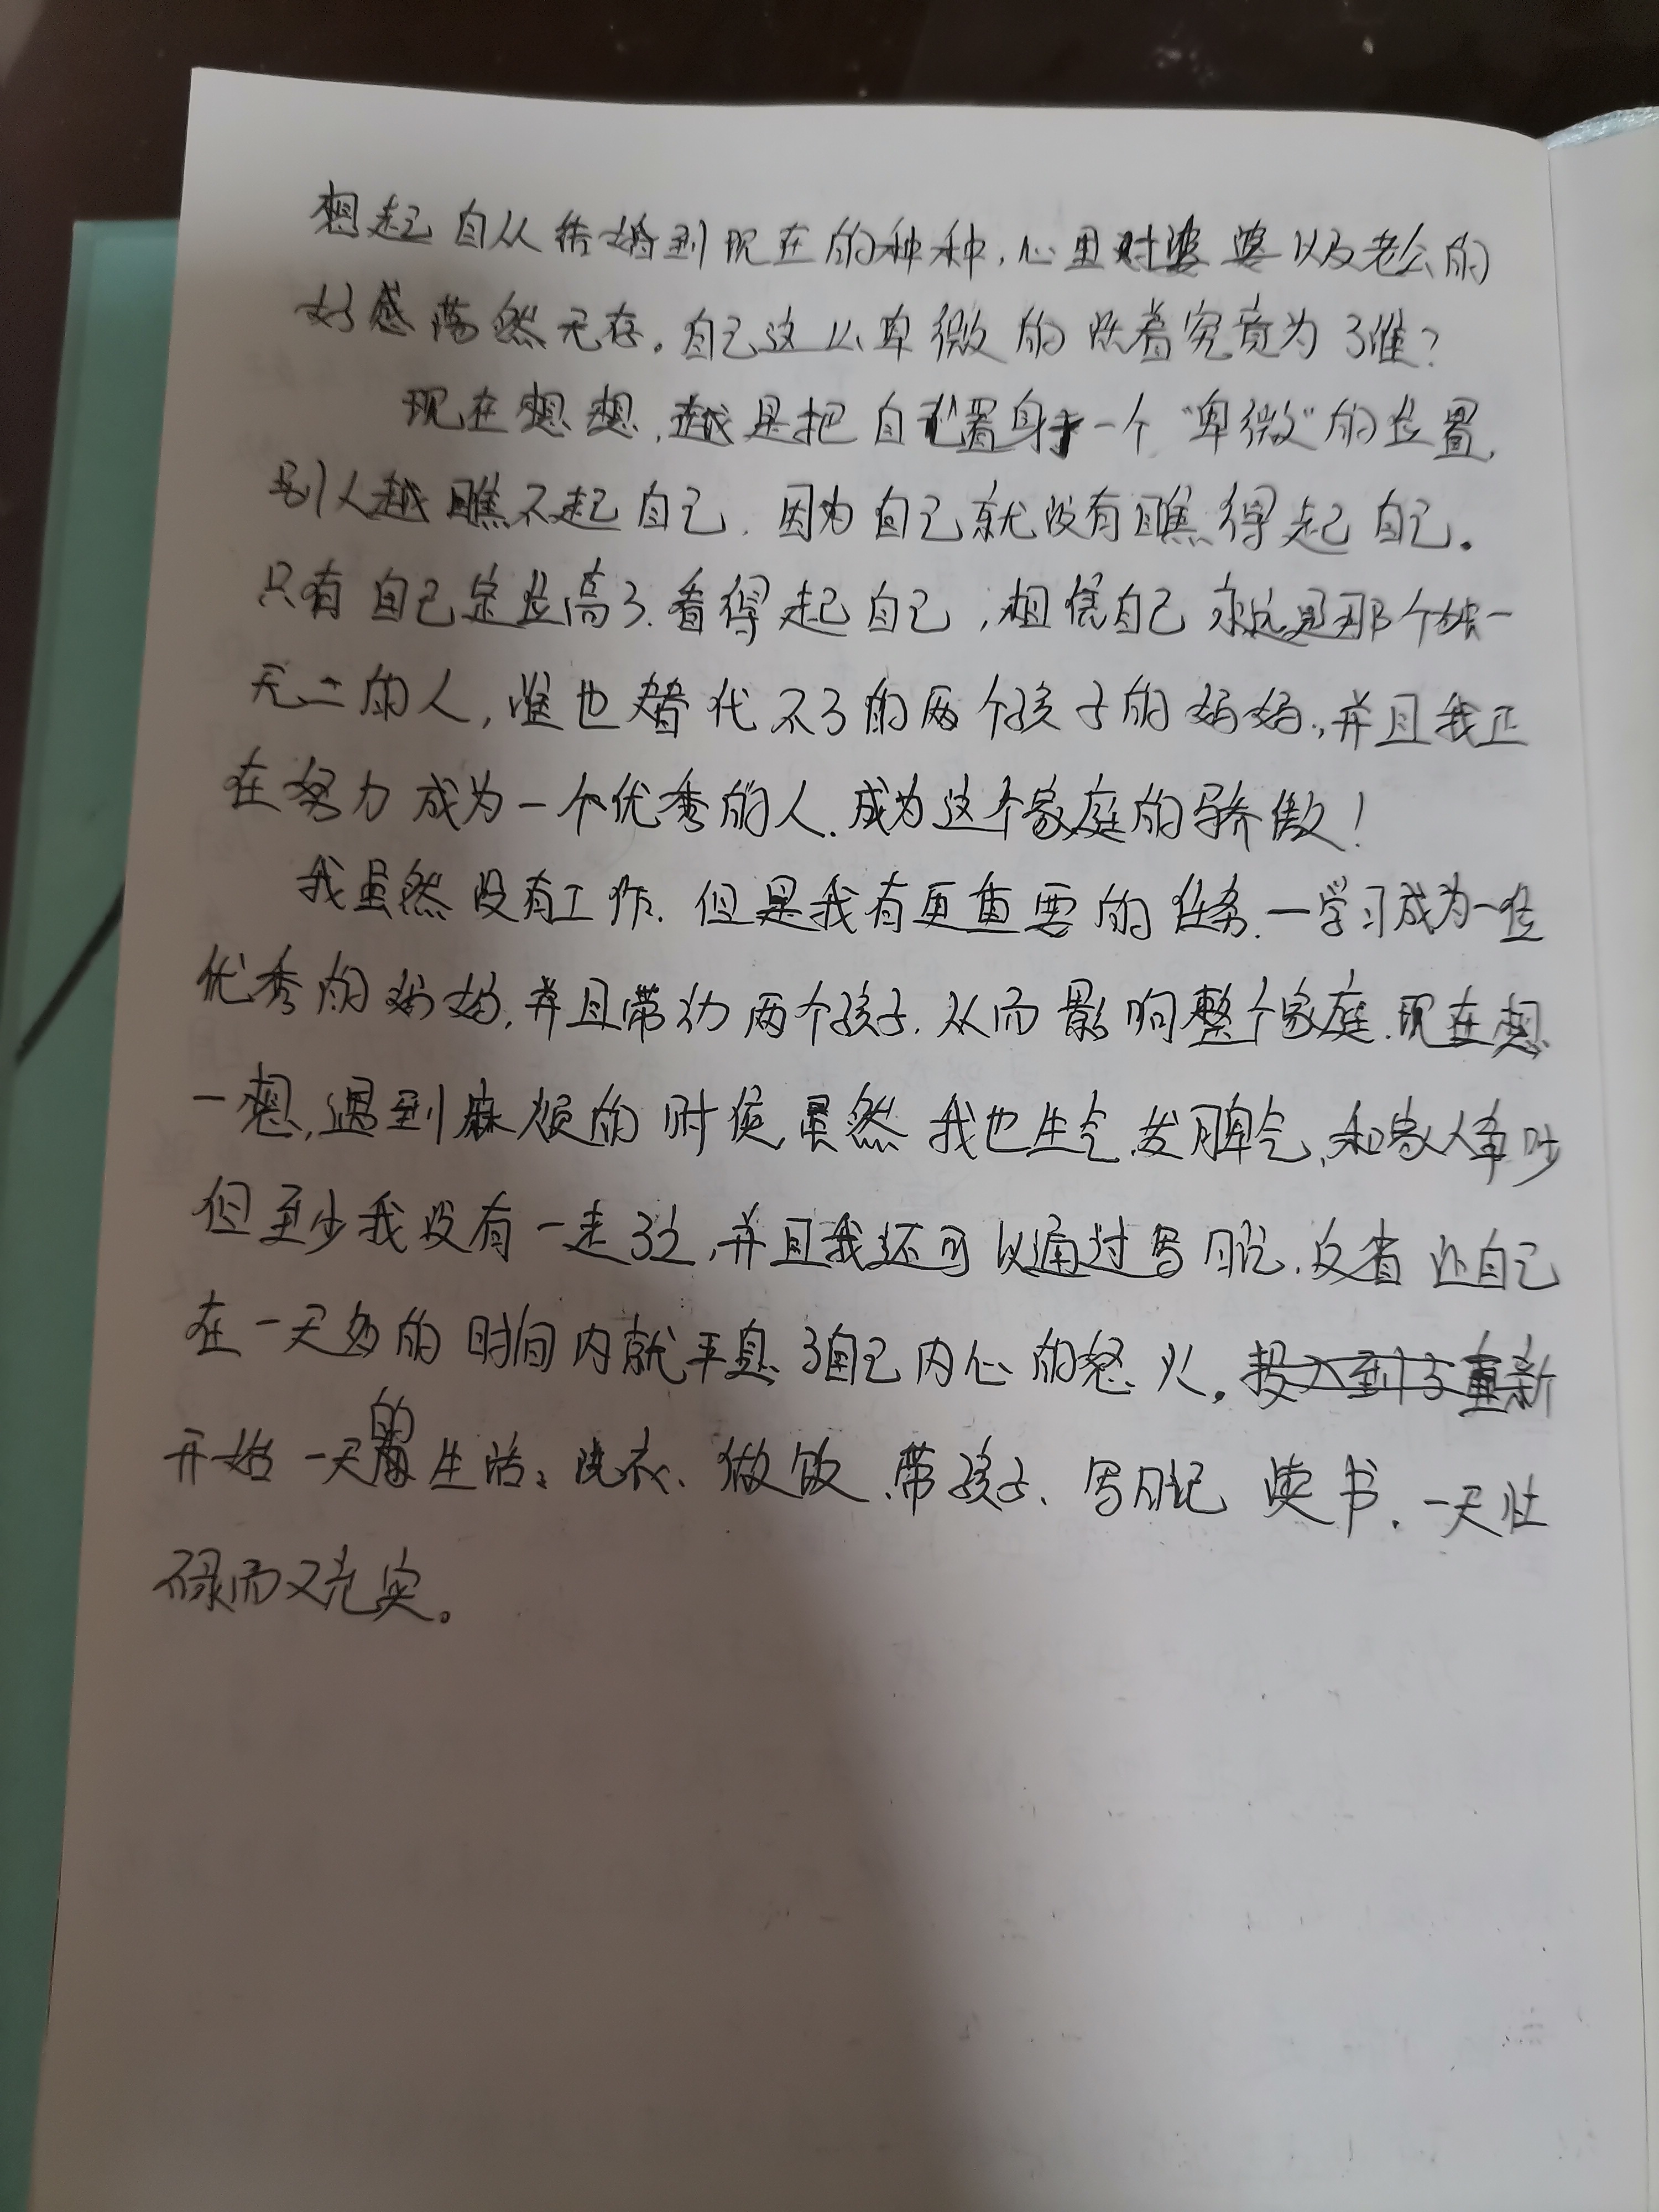 想起自从结婚到现在的种种,心里对婆婆以及老公的
好感荡然无存。自己这么卑微的活着究竟为了谁?
现在想想,越是把自己置身于一个“卑微”的位置,
别人越瞧不起自己,因为自己就没有瞧得起自己。
只有自己定位高了、看得起自己,相信自己永远是那个独一
无二的人,谁也替代不了的两个孩子的妈妈,并且我正
在努力成为一个优秀的人,成为这个家庭的骄傲!
我虽然没有工作,但是我有更重要的任务,一学习成为一位
优秀的妈妈,并且带动两个孩子,从而影响整个家庭.现在想
一想,遇到麻烦的时候,虽然我也生气、发脾气,和家人争吵
但至少我没有一走了之,并且我还可以通过写日记,反省让自己
在一天多的时间内就平息了自己内心的怒火。投入到了重新
开始一天的生活:洗衣、做饭、带孩子、写日记 读书,一天忙
碌而又充实。